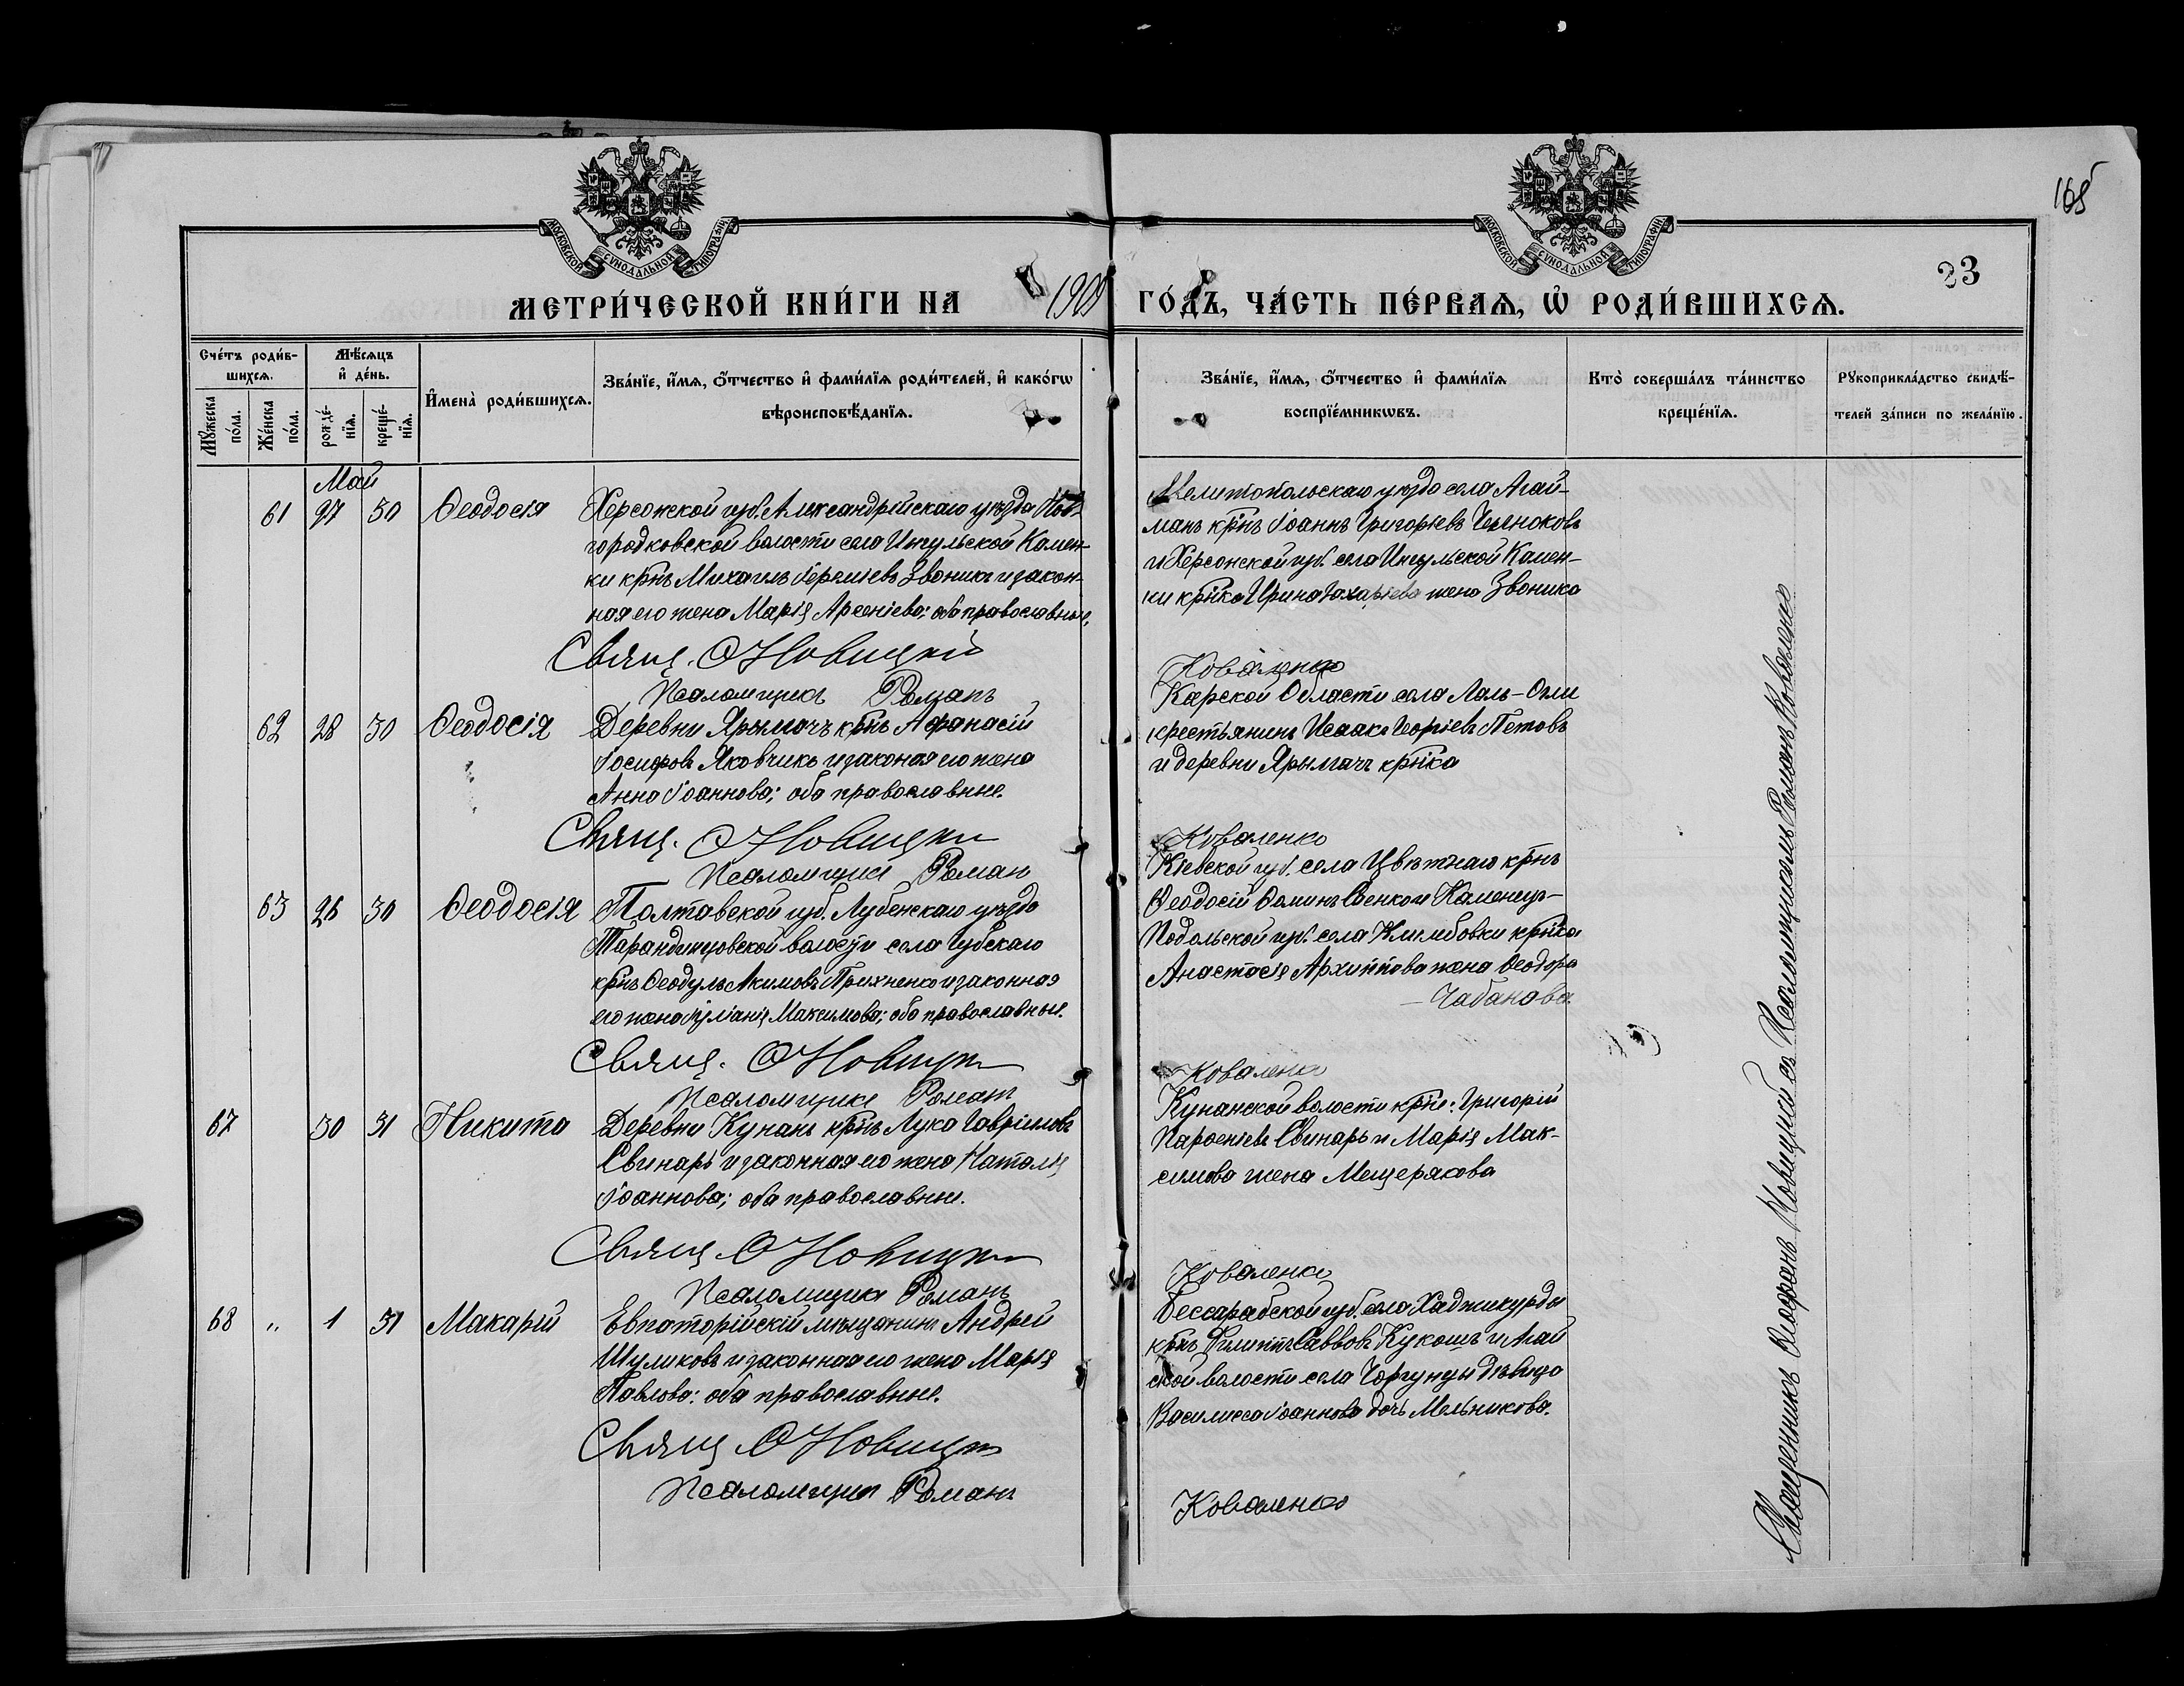 МОСКОВСКОЙ СѴНОДАЛЬНОЙ ТИПОГРАФІИ
МОСКОВСКОЙ СѴНОДАЛЬНОЙ ТИПОГРАФІИ
165
23
МЕТРИ́ЧЕСКОЙ КНИ́ГИ НА
ГО́ДЪ, ЧА́СТЬ ПЕ́РВАѦ, Ѡ҆ РОДИ́ВШИХСѦ.
Сче́тъ роди́в-
шихсѧ.
Мꙋ́жеска по́ла.
Же́нска по́ла.
Мѣ́сѧцъ
и҆ де́нь.
рожде́-
нїѧ.
креще́-
нїѧ.
И҆мена̀ роди́вшихсѧ.
Зва́нїе, и҆́мѧ, ѻ҆́тчество и҆ фами́лїѧ роди́телей, и҆ како́гѡ
вѣроисповѣ́данїѧ.
Зва́нїе, и҆́мѧ, ѻ҆́тчество и҆ фами́лїѧ
воспрїе́мникѡвъ.
Кто̀ соверша́лъ та́инство
креще́нїѧ.
Рꙋкоприкла́дство свидѣ́-
телей за́писи по жела́нїю.
Май
61 27 30 Ѳеодосія
Херсонской губ. Александрійскаго уѣзда Нов-
городковской волости села Ингульской Камен-
ки крнъ Михаилъ Звоникъ и закон-
ная его жена Марія Арсеніева; оба православные.
Свящ. Ѳ Новицкій
Псаломщикъ Романъ
Мелитопольскаго уѣзда села Агай-
манъ крнъ Іоаннъ Григорьевъ
и Херсонской губ. села Ингульской Камен-
ки крнка Ирина Захарьева жена Звоника
Коваленко
62 28 30 Ѳеодосія
Деревни Ярымачъ крнъ Афанасій
Іосифовъ Яковчикъ и законная его жена
Анна Іоаннова; оба православные.
Свящ. Ѳ Новицкій
Псаломщикъ Романъ
Карской Области села
крестьянинъ Исаакъ Георгіевъ Петовъ
и деревни Ярымачъ крнка
Коваленко
63 26 30 Ѳеодосія
Полтавской губ. Лубенскаго уѣзда
Тарандинцовской волости села Губскаго
крнъ Ѳеодулъ Акимовъ Прихненко и законная
его жена Іуліанія Максимова; оба православные.
Свящ. Ѳ Новицкій
Псаломщикъ Романъ
Кіевской губ. села Цвѣтнаго крнъ
Ѳеодосій Ѳоминъ и Каменец-
Подольской губ. села Климбовки крнка
Анастасія Архиппова жена Ѳеодора
Чабанова
Коваленко
67 30 31 Никита
Деревни Кунанъ крнъ Лука Гавріиловъ
Свинарь и законная его жена Наталія
Іоаннова; оба православные.
Свящ. Ѳ Новицкій
Псаломщикъ Романъ
Кунанской волости крне: Григорій
Парѳеніевъ Свинарь и Марія Мак-
симова жена Мещерякова
Коваленко
68 „ 1 31 Макарій
Евпаторійскій мѣщанинъ Андрей
Шуликовъ и законная его жена Марія
Павлова: оба православные.
Свящ. Ѳ Новицкій
Псаломщикъ Романъ
Бессарабской губ. села Хаджикурды
крнъ Филиппъ Саввовъ Кукошъ и Агай
ской волости села Чоргунцы дѣвица
Василисса Іоаннова дочь Мельникова.
Коваленко
Священникъ Ѳеофанъ Новицкій съ Псаломщикомъ Романомъ Коваленко